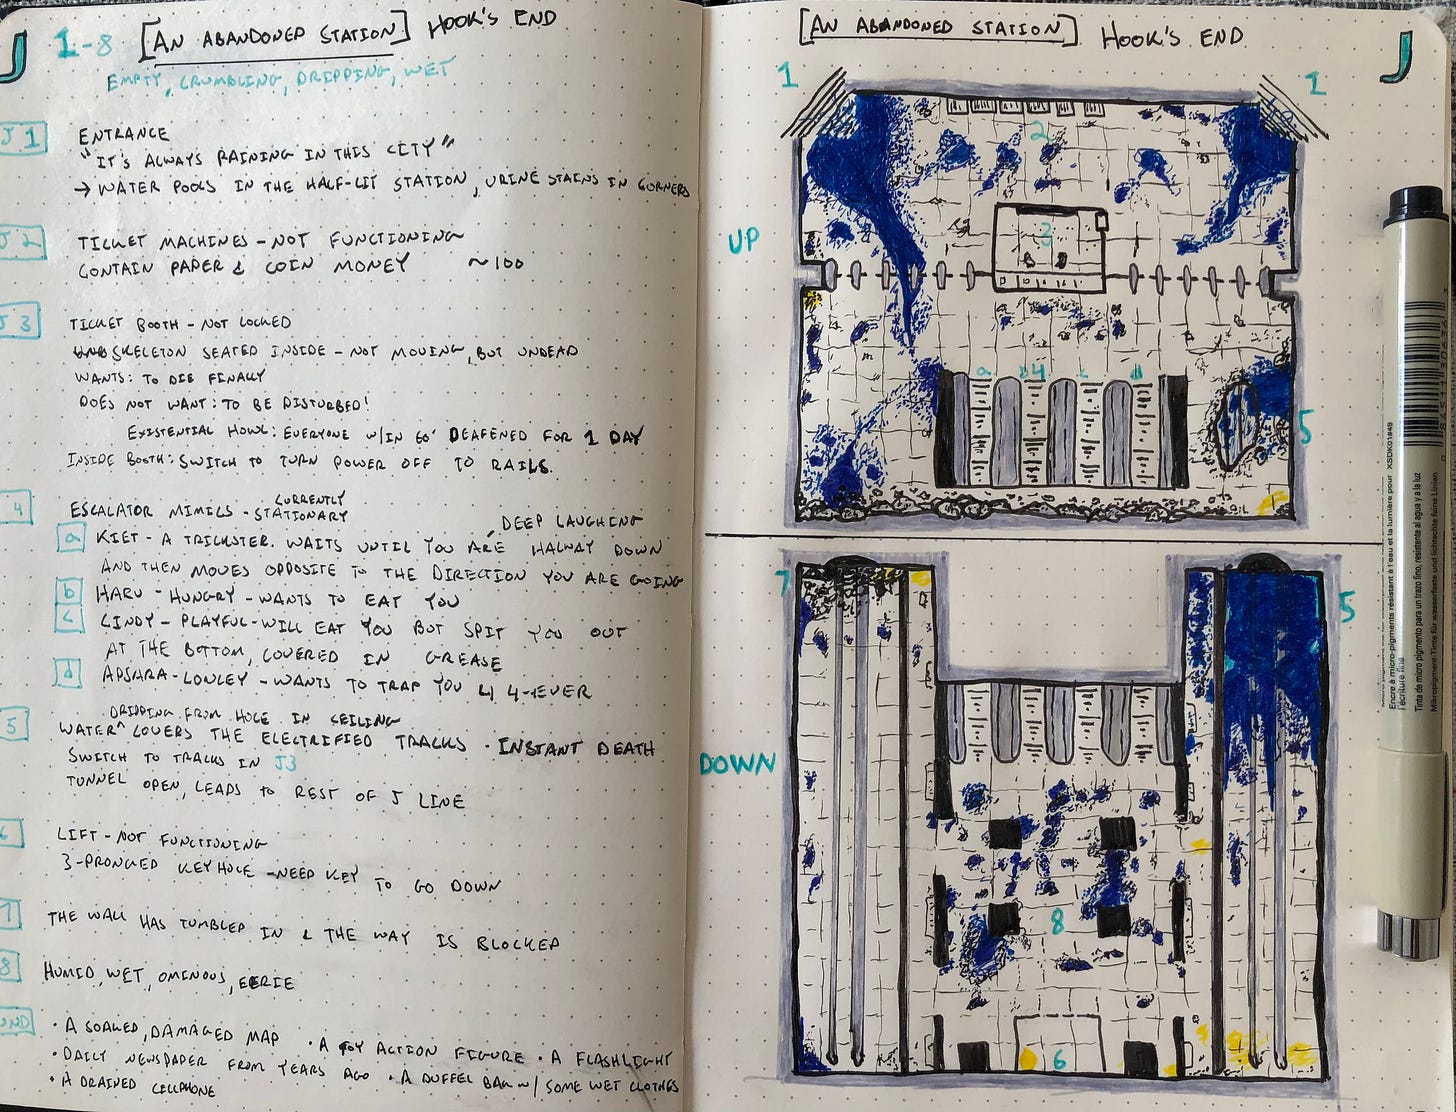 J
1-8 [AN ABANDONED STATION] HOOK'S END
EMPTY, CRUMBLING, DRIPPING, WET
J1 ENTRANCE
"IT'S ALWAYS RAINING IN THIS CITY"
→ WATER POOLS IN THE HALF-LIT STATION, URINE STAINS IN CORNERS
J2 TICKET MACHINES - NOT FUNCTIONING
CONTAIN PAPER & COIN MONEY ~100
J3 TICKET BOOTH - NOT LOCKED
SKELETON SEATED INSIDE - NOT MOVING, BUT UNDEAD
WANTS: TO DIE FINALLY
DOES NOT WANT: TO BE DISTURBED!
EXISTENTIAL HOWL: EVERYONE W/IN 60' DEAFENED FOR 1 DAY
INSIDE BOOTH: SWITCH TO TURN POWER OFF TO RAILS.
4 ESCALATOR MIMICS - CURRENTLY STATIONARY
a KIET - A TRICKSTER. WAITS UNTIL YOU ARE HALWAY DOWN DEEP LAUGHING
AND THEN MOVES OPPOSITE TO THE DIRECTION YOU ARE GOING
b HARU - HUNGRY - WANTS TO EAT YOU
c LINDY - PLAYFUL - WILL EAT YOU BUT SPIT YOU OUT
AT THE BOTTOM, COVERED IN GREASE
d APSARA - LONLEY - WANTS TO TRAP YOU 4 4-EVER
5 WATER DRIPPING FROM HOLE IN CEILING COVERS THE ELECTRIFIED TRACKS · INSTANT DEATH
SWITCH TO TRACKS IN J3
TUNNEL OPEN, LEADS TO REST OF J LINE
6 LIFT - NOT FUNCTIONING
3-PRONGED KEYHOLE - NEED KEY TO GO DOWN
7 THE WALL HAS TUMBLED IN & THE WAY IS BLOCKED
8 HUMID, WET, OMINOUS, EERIE
· A SOAKED, DAMAGED MAP · A TOY ACTION FIGURE · A FLASHLIGHT
· DAILY NEWSPAPER FROM YEARS AGO · A DUFFEL BAG W/ SOME WET CLOTHES
· A DRAINED CELLPHONE
[AN ABANDONED STATION] HOOK'S END
J
1
1
2
UP
3
a b 4 c d
5
7
5
DOWN
8
6
XSDK01#49
Encre à micro-pigments résistant à l'eau et la lumière pour l'écriture fine
Tinta de micro pigmento para un trazo fino, resistente al agua y a la luz
Mikropigment-Tinte für wasserfeste und lichtechte feine Linien